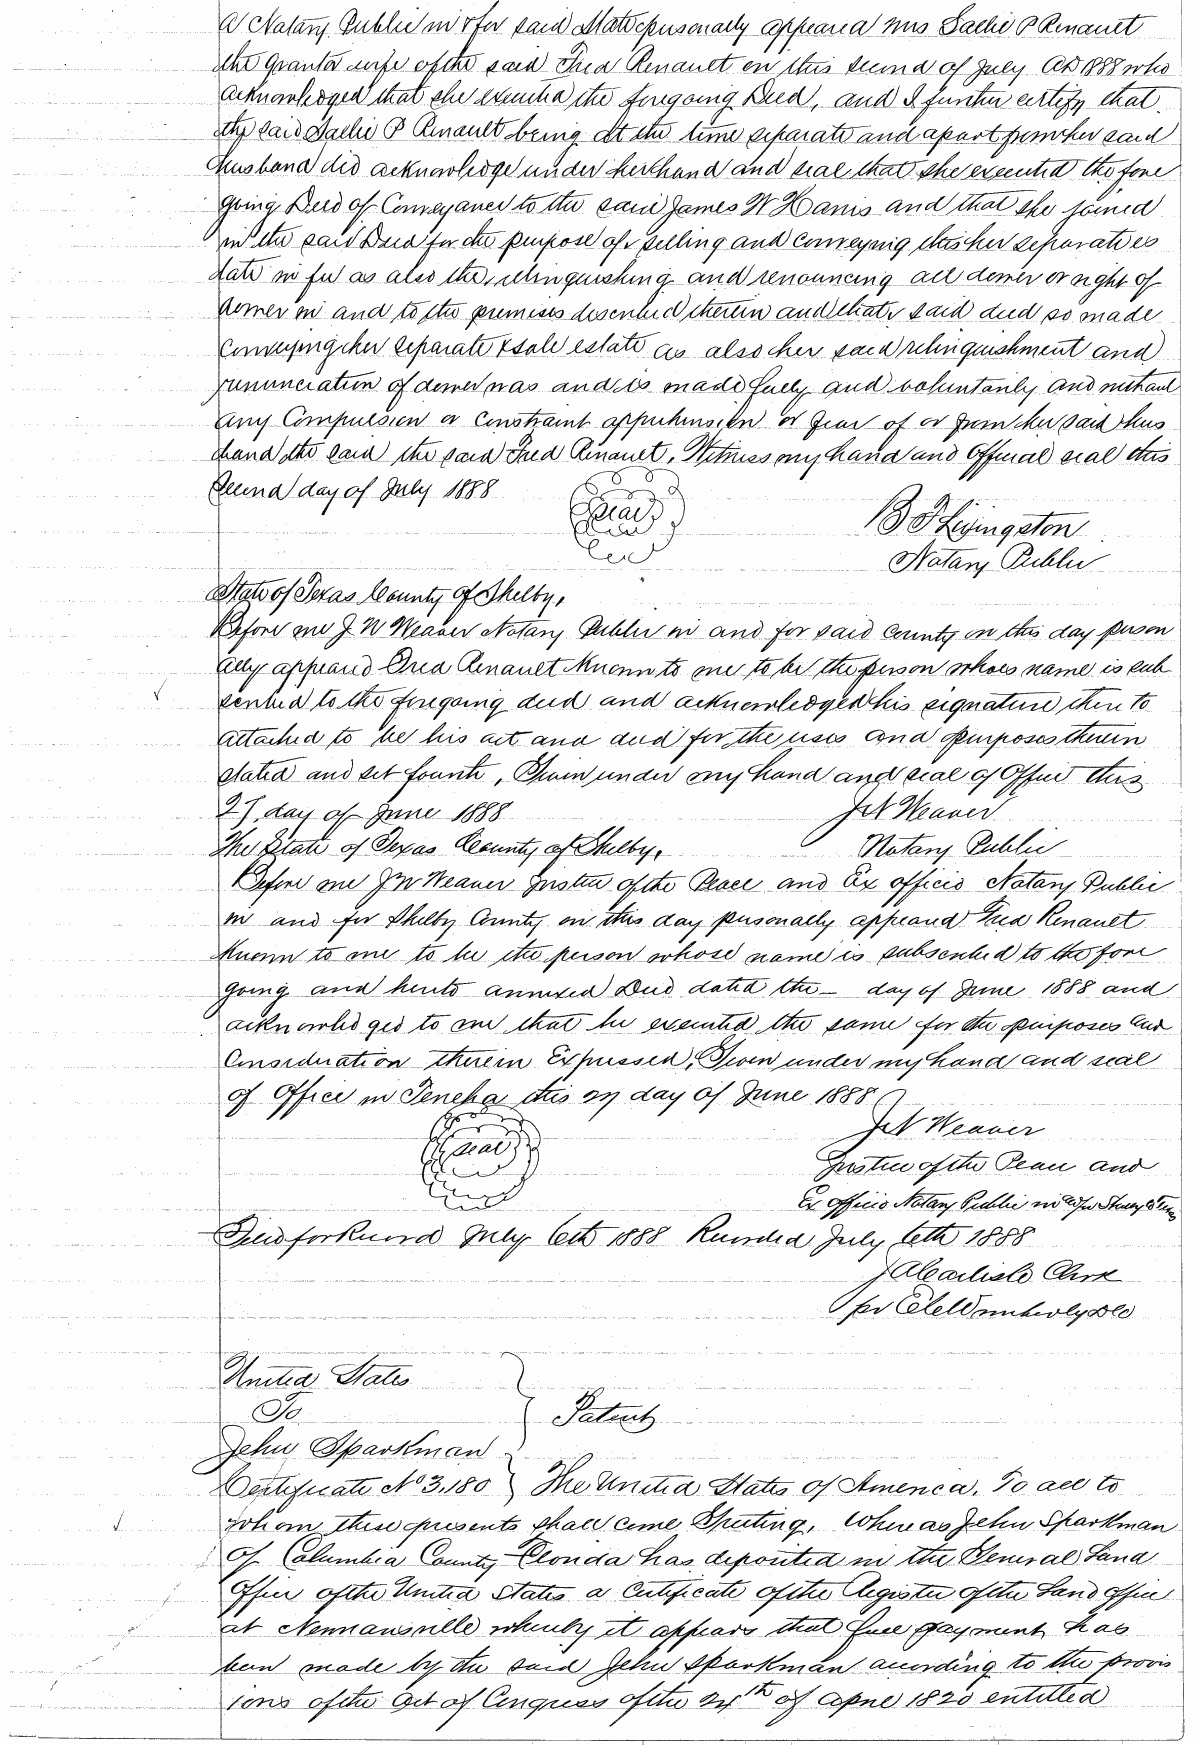 a Notary Public in & for said State personally appeared Mrs Sallie P Renault
the grantor wife of the said Fred Renault on this second of July AD 1888 who
acknowledged that she executed the foregoing Deed, and I further certify that
the said Sallie P Renault being at the time separate and apart from her said
husband did acknowledge under her hand and seal that she executed the fore
going Deed of Conveyance to the said James W Harris and that she joined
in the said Deed for the purpose of selling and conveying this her separate es
tate in fee as also the relinquishing and renouncing all dower or right of
dower in and to the premises described therein and that said deed so made
conveying her separate & sole estate as also her said relinquishment and
renunciation of dower was and is made freely and voluntarily and without
any Compulsion or constraint apprehension or fear of or from her said hus
band the said the said Fred Renault, Witness my hand and Official seal this
Second day of July 1888
Seal
B F Livingston
Notary Public
State of Texas County of Shelby,
Before me J N Weaver Notary Public in and for said County on this day person
ally appeared Fred Renault Known to me to be the person whoes name is sub
scribed to the foregoing deed and acknowledged his signature there to
attached to be his act and deed for the uses and purposes therein
stated and set fourth, Given under my hand and seal of Office this
27 day of June 1888
J N Weaver
The State of Texas County of Shelby,
Notary Public
Before me J N Weaver Justice of the Peace and Ex officio Notary Public
in and for Shelby County on this day personally appeared Fred Renault
Known to me to be the person whose name is subscribed to the fore
going and hereto annexed Deed dated the – day of June 1888 and
acknowledged to me that he executed the same for the purposes and
Consideration therein Expressed, Given under my hand and seal
of Office in Teneha this 27 day of June 1888
J N Weaver
Seal
Justice of the Peace and
Ex officio Notary Public in & for Shelby Co Texas
Filed for Record July 6th 1888 Recorded July 6th 1888
Carlisle Clerk
per
United States
To
Patent
John Sparkman
Certificate No 3,180 } The United States of America, To all to
whom these presents shall come Greeting, Whereas John Sparkman
of Columbia County Florida has deposited in the General Land
Office of the United States a Certificate of the Register of the Land Office
at Newnansville whereby it appears that full payment has
been made by the said John Sparkman according to the provis
ions of the Act of Congress of the 24th of April 1820 entitled